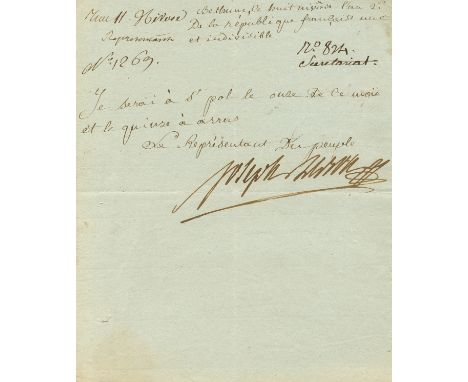 11 Nivose Bethune, le huit nivose l'an 2e
Representants De la république francaise une
et indivisible
No. 1269. No. 824.
Secretariat.
Je serai à St pol le onze De ce mois
et le quinze à arras
Le Représentant Du peuple
Joseph